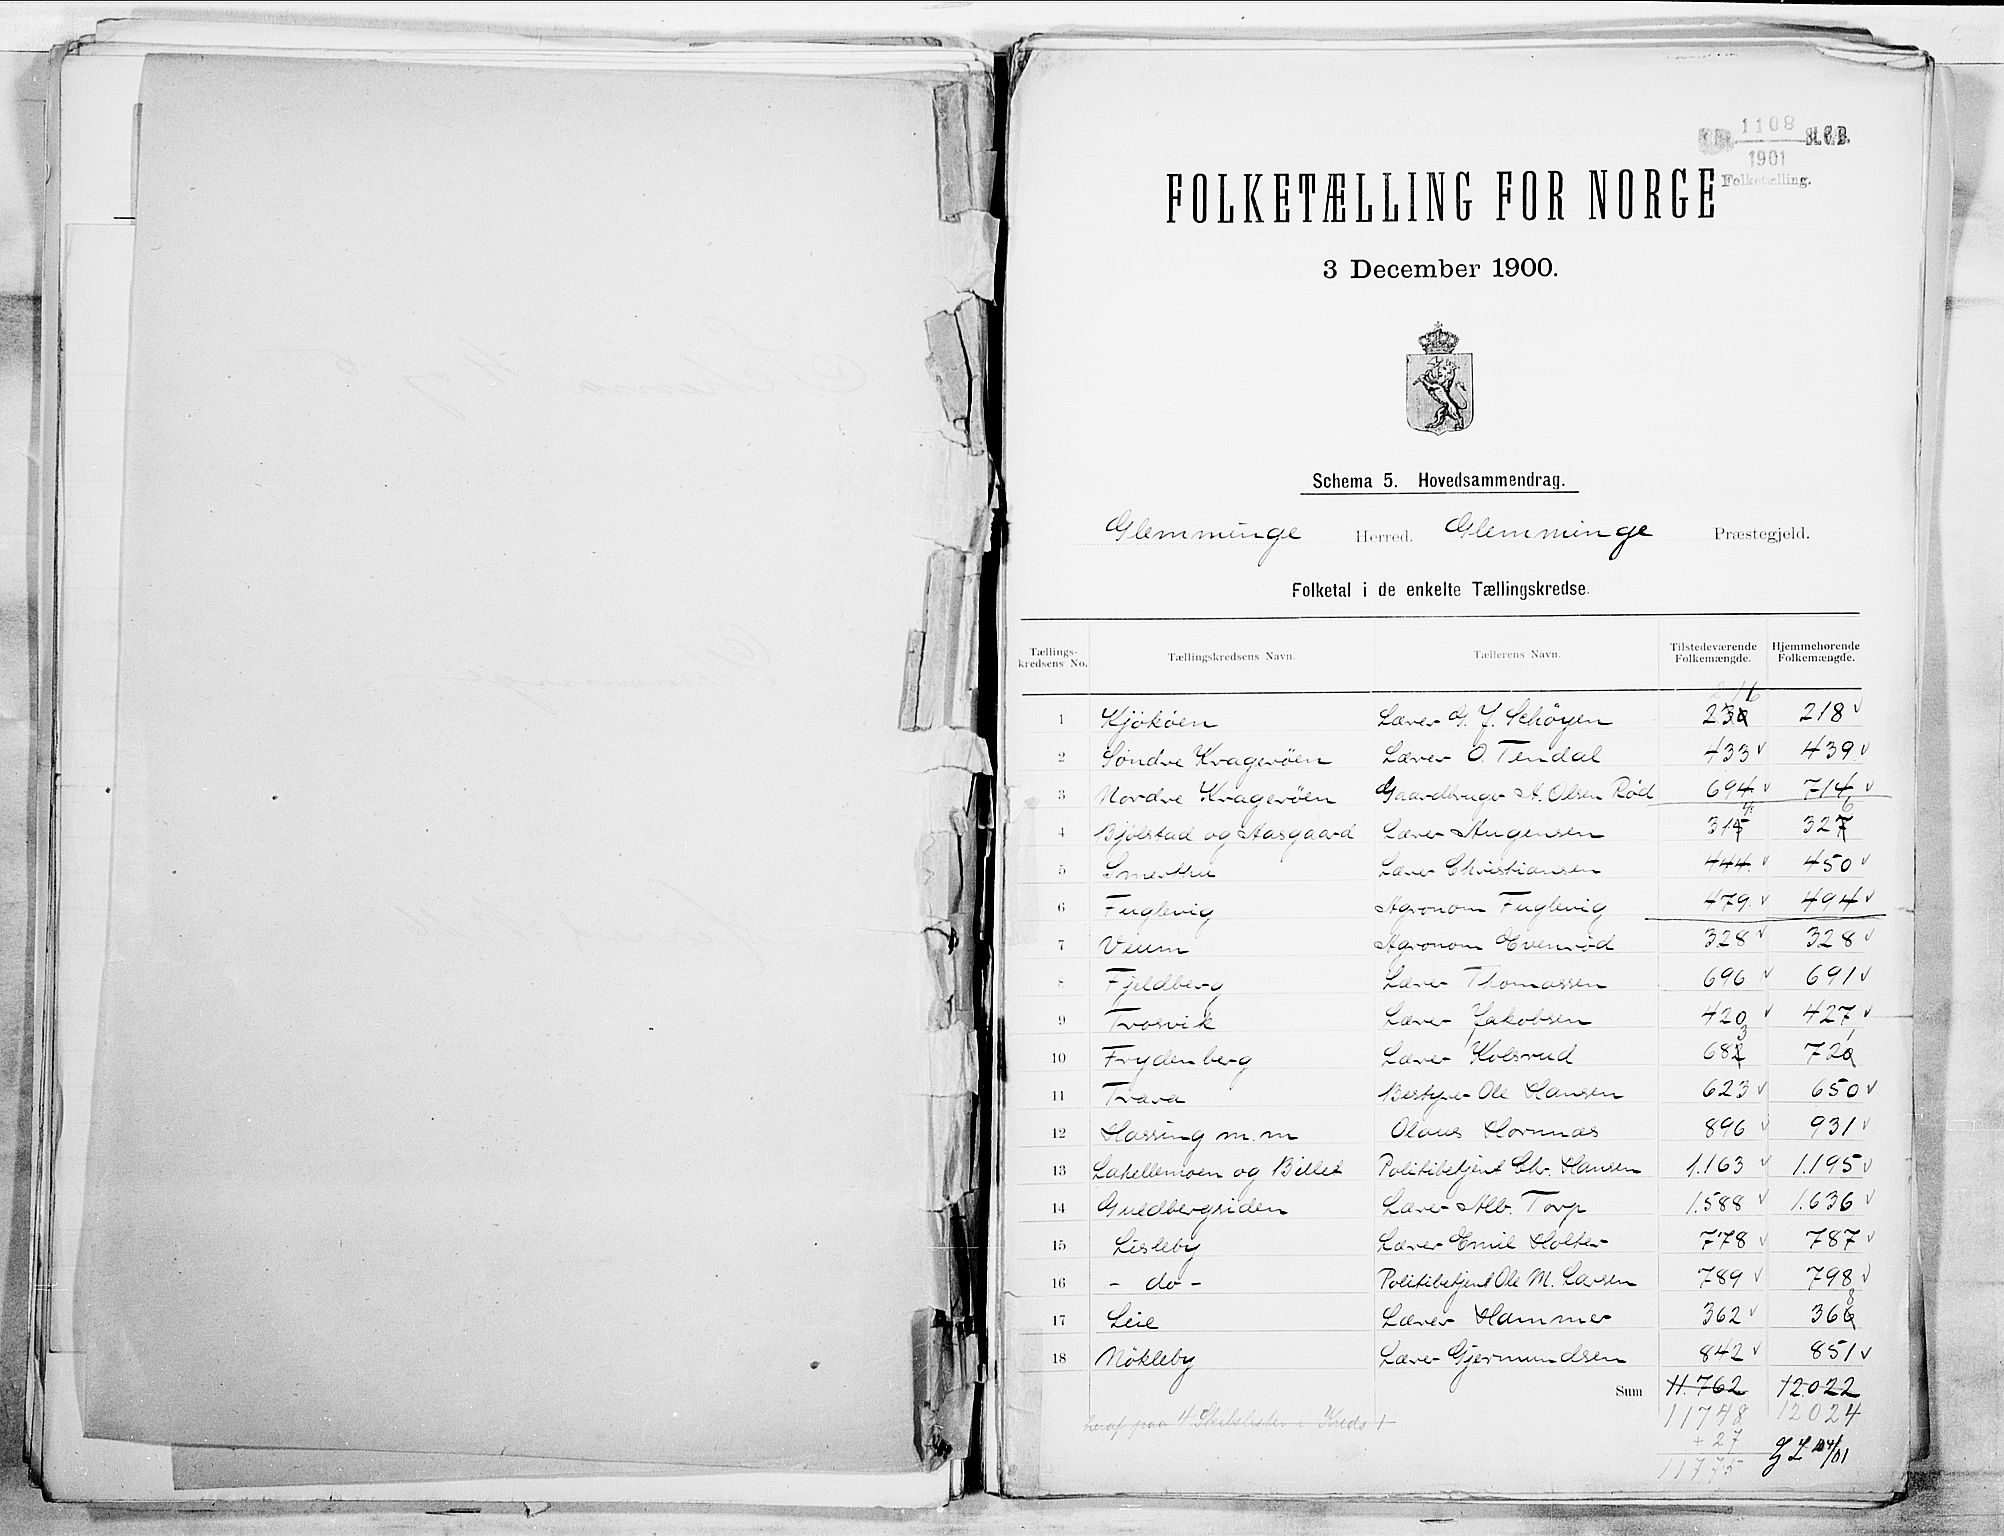 1108
1901
Folketælling.
FOLKETÆLLING FOR NORGE
3 December 1900.
Schema 5. Hovedsammendrag.
Glemminge Herred. Glemminge Præstegjeld.
Folketal i de enkelte Tællingskredse.
Tællings-kredsens No. Tællingskredsens Navn. Tællerens Navn. Tilstedeværende Folkemængde. Hjemmehørende Folkemængde.
216
1 Kjököen Lærer G. J. Schöyen 230 218 v
2 Söndre Krageröen Lærer O. Tendal 433 v 439 v
3 Nordre Krageröen Gaardbruger A. Olsen Rød 694 v 714 v
4 Bjölstad og Aasgaard Lærer Augensen 315 327
5 Smerthu Lærer Christiansen 444 v 450 v
6 Fuglevig Agronom Fuglevig 479 v 494 v
7 Veum Agronom Evenrød 328 v 328 v
8 Fjeldberg Lærer Thomassen 696 v 691 v
9 Trosvik Lærer Jakobsen 420 v 427 v
3 1
10 Frydenberg Lærer Kolsrud 682 720
11 Trara Bestyrer Ole Hansen 623 v 650 v
12 Hassing m.m Olaus Hornnæs 896 v 931 v
13 Lakellemoen og Billet Politibetjent Chr. Hansen 1.163 v 1.195 v
14 Guldbergsiden Lærer Alb. Torp 1.588 v 1.636 v
15 Lisleby Lærer Emil Holter 778 v 787 v
16 - do - Politibetjent Ole M. Larsen 789 v 798 v
8
17 Leie Lærer Hammer 362 v 366
18 Nökleby Lærer Gjermundsen 842 v 851 v
Sum 11.762 12022
heraf paa 4 Skibslister i Kreds 1 11748 12024
+ 27
11775